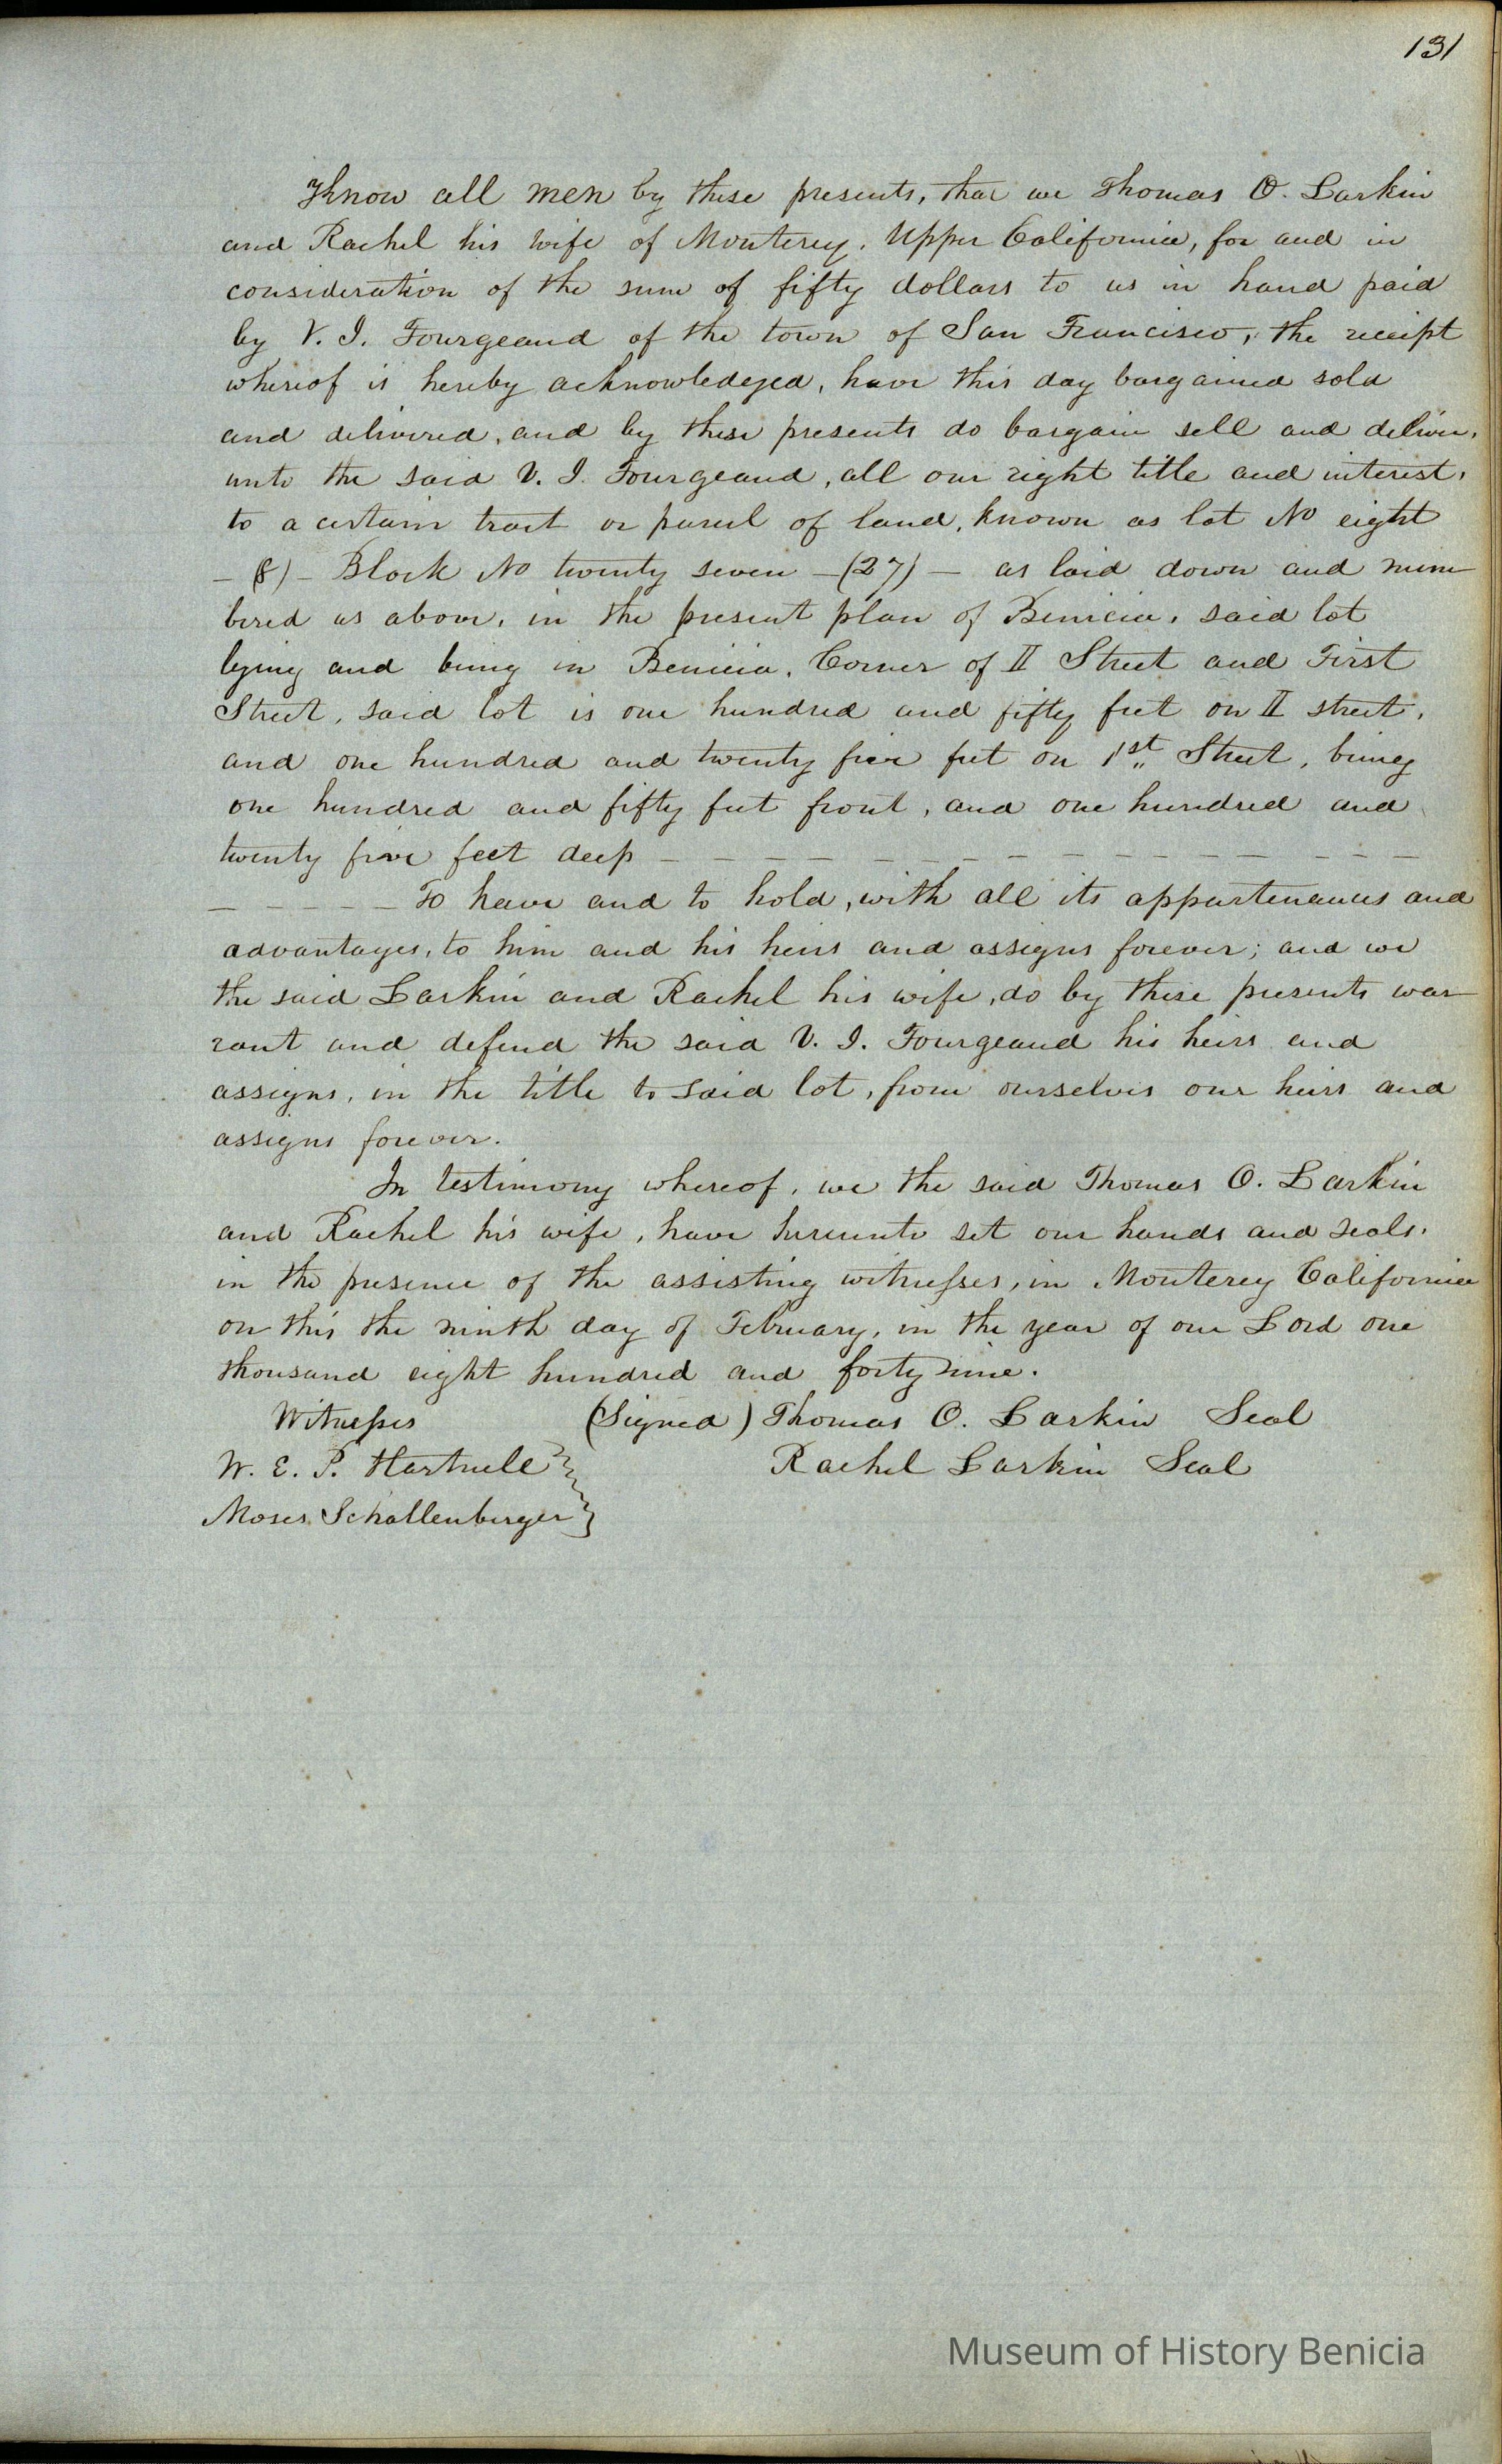 131
Know all men by these presents, that we Thomas O. Larkin
and Rachel his wife of Monterey, Upper California, for and in
consideration of the sum of fifty dollars to us in hand paid
by V. J. Fourgeaud of the town of San Francisco, the receipt
whereof is hereby acknowledged, have this day bargained sold
and delivered, and by these presents do bargain sell and deliver,
unto the said V. J. Fourgeaud, all our right title and interest,
to a certain tract or parcel of land, known as lot No eight
— (8) — Block No twenty seven — (27) — as laid down and num-
bered as above, in the present plan of Benicia, said lot
lying and being in Benicia, Corner of II Street and First
Street, said lot is one hundred and fifty feet on II street,
and one hundred and twenty five feet on 1st Street, being
one hundred and fifty feet front, and one hundred and
twenty five feet deep — — — — — — — — — — — — — — —
— — — — — To have and to hold, with all its appurtenances and
advantages, to him and his heirs and assigns forever; and we
the said Larkin and Rachel his wife, do by these presents war-
rant and defend the said V. J. Fourgeaud his heirs and
assigns, in the title to said lot, from ourselves our heirs and
assigns forever.
In testimony whereof, we the said Thomas O. Larkin
and Rachel his wife, have hereunto set our hands and seals,
in the presence of the assisting witnesses, in Monterey California
on this the ninth day of February, in the year of our Lord one
thousand eight hundred and forty nine.
Witnesses (Signed) Thomas O. Larkin Seal
W. E. P. Hartnell Rachel Larkin Seal
Moses Schallenberger
Museum of History Benicia